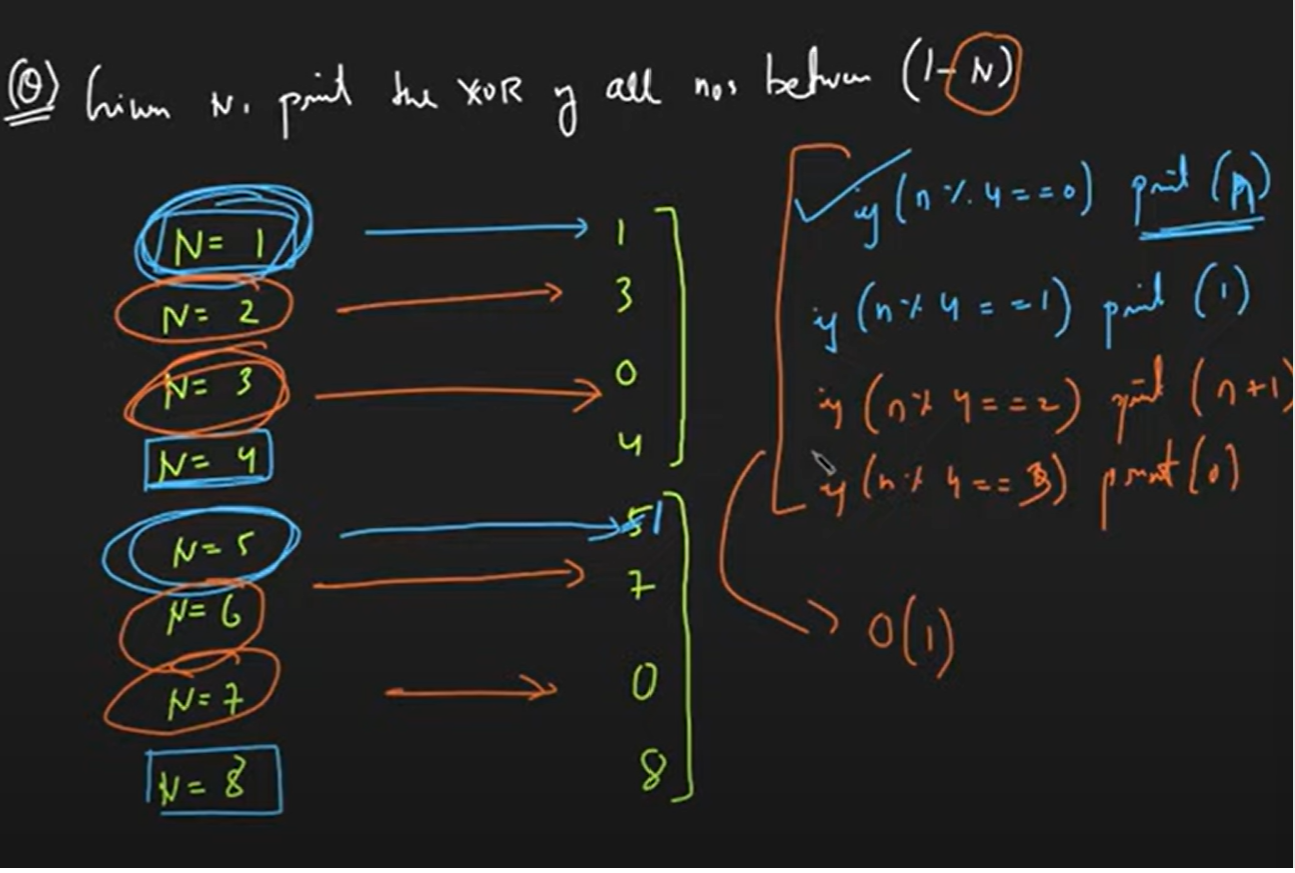 Q) Given N, print the XOR of all nos between (1-N)
N = 1 → 1
N = 2 → 3
N = 3 → 0
N = 4 4
N = 5 → 5 1
N = 6 → 7
N = 7 → 0
N = 8 8
if (n % 4 == 0) print (n)
if (n % 4 == 1) print (1)
if (n % 4 == 2) print (n+1)
if (n % 4 == 3) print (0)
O(1)